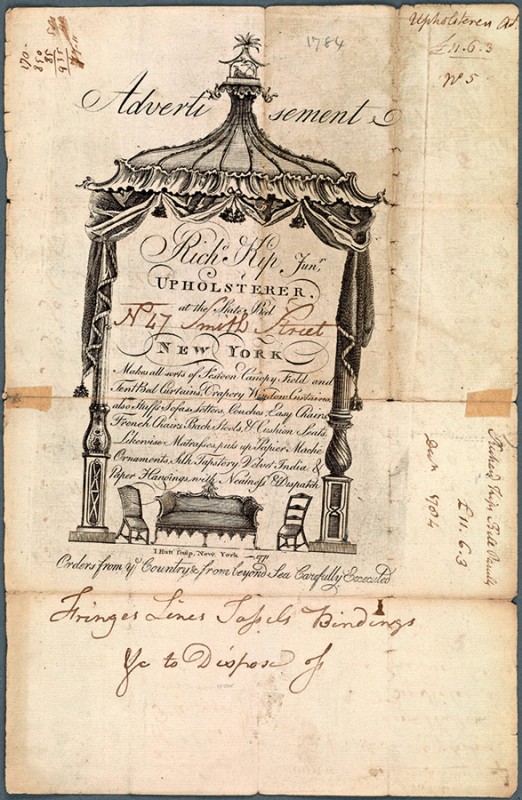 1784
Upholsterer
£11.6.3
No 5
170
Advertisement
Richd. Kip Junr.
UPHOLSTERER.
at the White Bed
No 47 Smith Street
NEW YORK
Makes all sorts of Festoon Canopy Field and
Tent Bed Curtains, Drapery Window Curtains
also Stuffs Sofas, Settees, Couches Easy Chairs
French Chairs, Back Stools, & Cushion Seats
Likewise Matrasses, puts up Papier Machie
Ornaments, Silk Tapestry Velvet India &
Paper Hangings, with Neatness & Dispatch
I. Hutt Sculp. New York
Orders from ye Country & from beyond Sea Carefully Executed
Fringes Lines Tassels Bindings
&c to Dispose of
Richard Kips
£11.6.3
1784